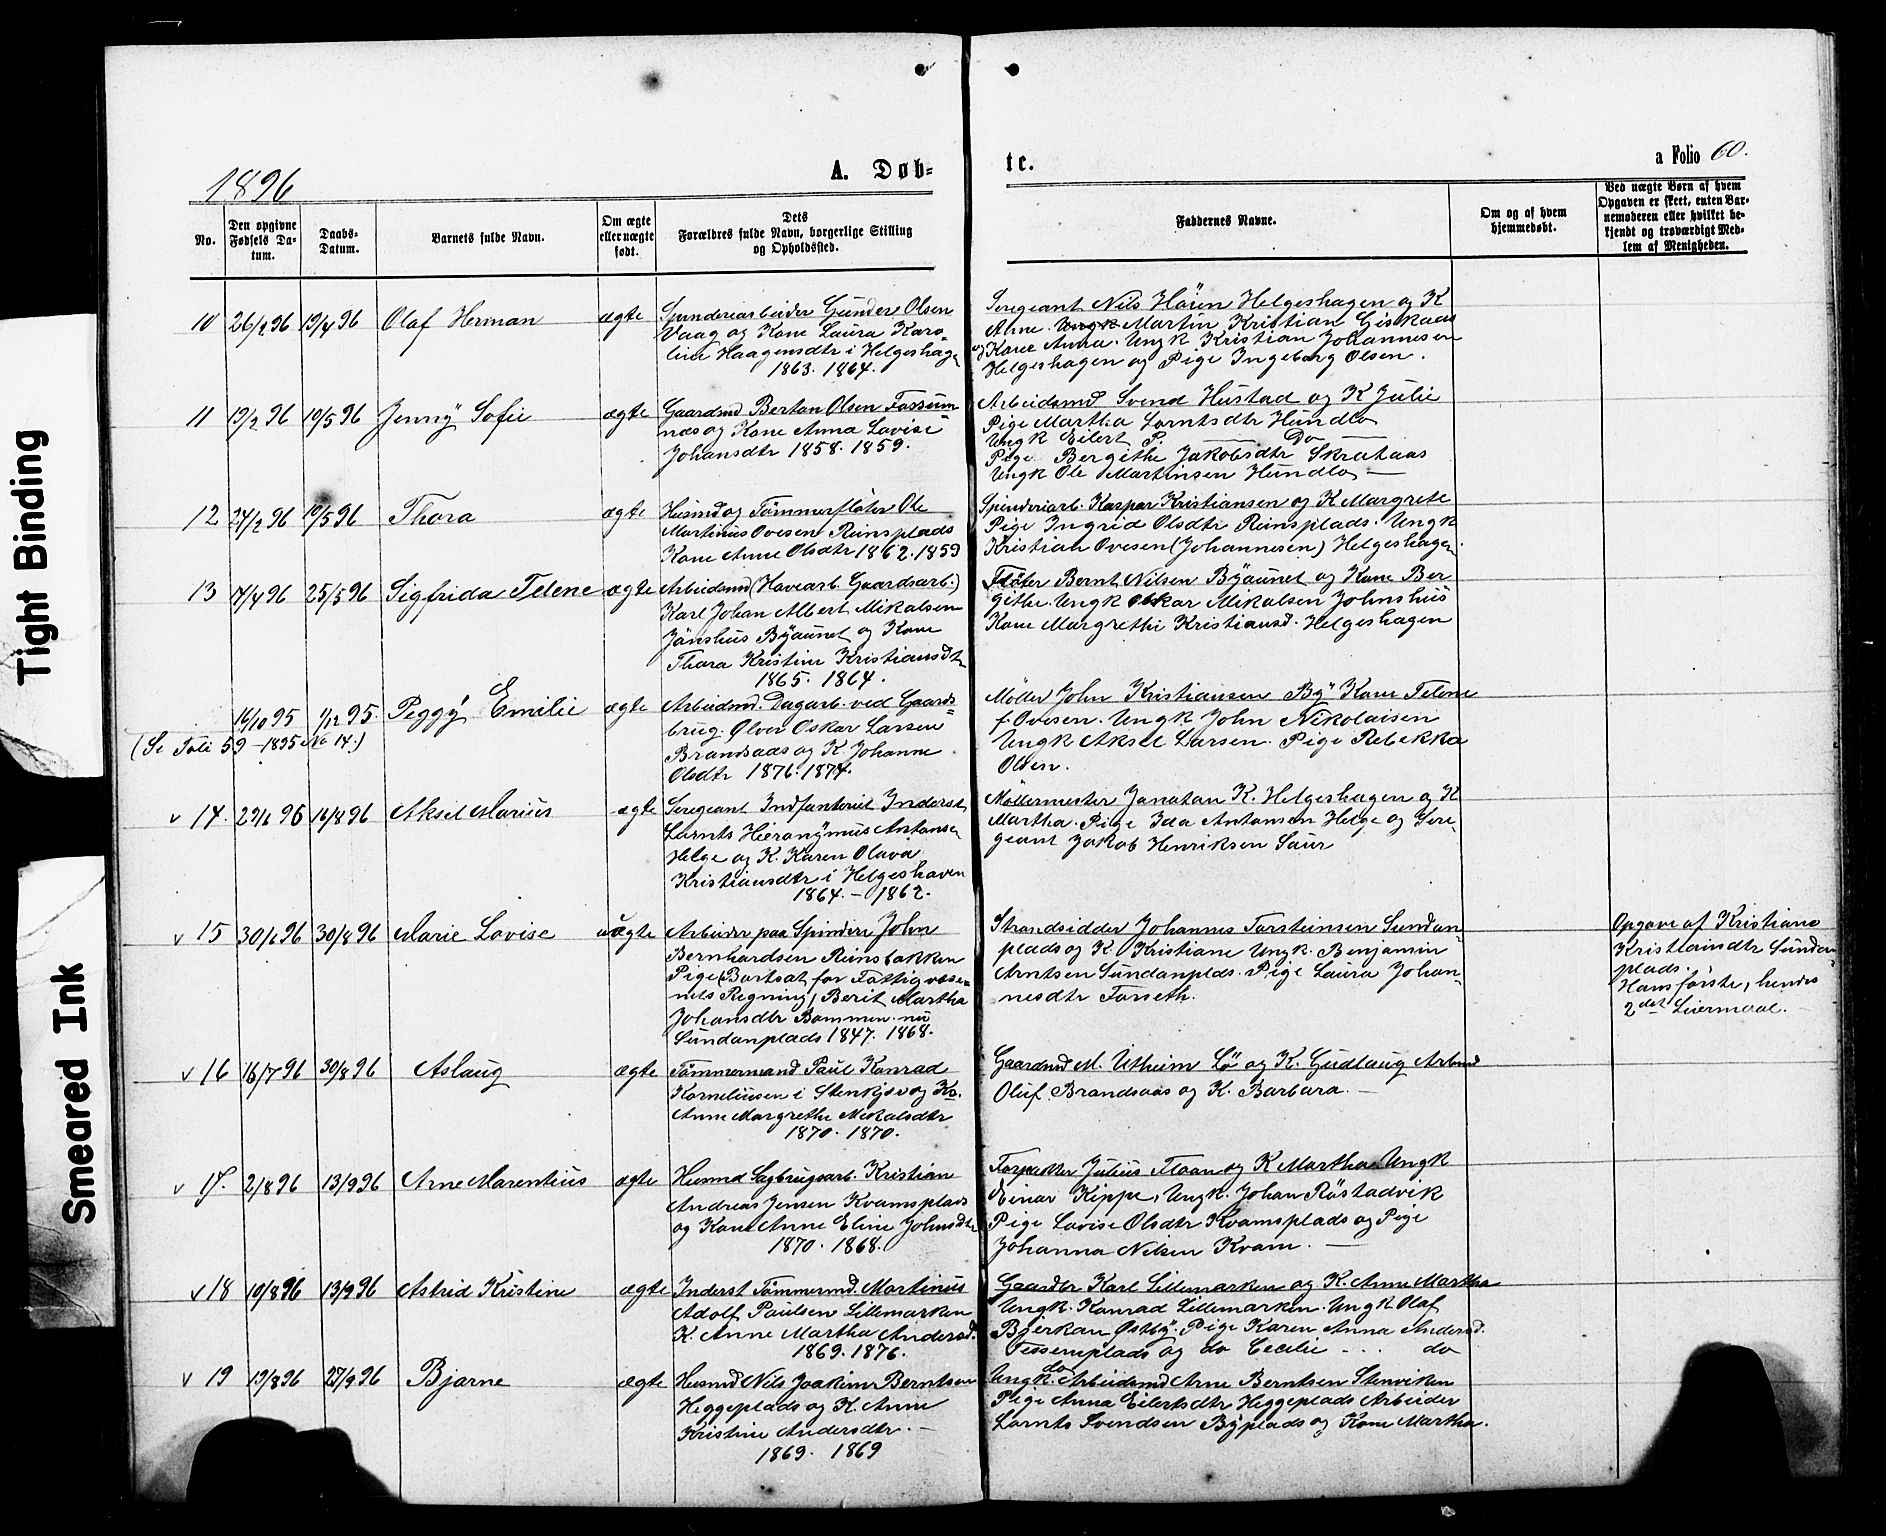 Tight Binding
Smeared Ink
1896
A. Døb=
te.
a Folio 60.
No.
Den opgivne Fødsels Da-tum.
Daabs-Datum.
Barnets fulde Navn.
Om ægte eller uægte født.
Dets Forældres fulde Navn, borgerlige Stilling og Opholdssted.
Faddernes Navne.
Om og af hvem hjemmedøbt.
Ved uægte Børn af hvem Opgaven er skeet, enten Bar-nemoderen eller hvilket be-kjendt og troværdigt Med-lem af Menigheden.
10 26/2 96 19/4 96 Olaf Herman ægte
Spinderiarbeider Gunder Olsen
Vaag og Kone Laura Karo-
line Haagensdtr i Helgeshagen
1863. 1864.
Seregeant Nils Höien Helgeshagen og K
Ane. Ungk Martin Kristian Giskaas
og Kone Anna. Ungk Kristian Johannesen
Helgeshagen og Pige Ingeborg Olsen.
11 19/2 96 10/5 96 Jenny Sofie ægte
Gaardmd Bertan Olsen Fossum
næs og Kone Anna Lovise
Johansdtr 1858. 1859.
Arbeidsmd Svend Hustad og K Julie
Pige Martha Lorntsdtr Hundlo
Ungk Eilert P. Do
Pige Bergithe Jakobsdtr Skrataas
Ungk Ole Martinsen Hundlo
12 24/2 96 10/5 96 Thora ægte
Husmd og Tömmerflöter Ole
Martinus Ovesen Reinsplads
Kone Anne Olsdtr 1862. 1859
Spinderiarb. Kaspar Kristiansen og K Margrete
Pige Ingrid Olsdtr Reinsplads. Ungk
Kristian Ovesen (Johannesen) Helgeshagen
13 7/4 96 25/5 96 Sigfrida Telene ægte
Arbeidsmd (Havearb. Gaardsarb.)
Karl Johan Albert Mikalsen
Jönshus Byaunet og Kone
Thora Kristine Kristiansdtr
1865. 1864.
Flöter Bernt Nilsen Byaunet og Kone Ber
githe. Ungk Oskar Mikalsen Johnshus
Kone Margrethe Kristiansd. Helgeshagen
16/10 95 1/12 95. Peggy Emilie ægte
(Se Foli 59 - 1895 No 14.)
Arbeidsmd. Dagarb. ved Gaards=
brug. Ølver Oskar Larsen
Brandsaas og K. Johanne
Olsdtr 1876. 1874.
Möller John Kristiansen By Kone Telene
f. Ovesen. Ungk John Nikolaisen
Ungk Aksel Larsen. Pige Rebekka
Olsen.
v 14. 29/6 96 16/8 96 Aksel Marius ægte
Seregeant Indfanteriet Inderst
Lornts Hieronymus Antonsen
Helge og K. Karen Olava
Kristiansdtr i Helgeshaven
1864. - 1862.
Möllermester Jonatan K. Helgeshagen og K
Martha. Pige Ida Antonsen Helge og Sere-
geant Jakob Henriksen Saur
v 15 30/6 96 30/8 96 Marie Lovise uægte
Arbeider paa Spinderi John
Bernhardsen Reinsbakken
Pige (Bortsat for Fattigvæse-
nets Regning) Berit Martha
Johansdtr Bommen. nu
Sundanplads 1847. 1868.
Strandsidder Johannes Torsteinsen Sundan-
plads og K Kristiane Ungk. Benjamin
Arntsen Sundanplads. Pige Laura Johan-
nesdtr Forseth.
Opgave af Kristiane
Kristiansdtr Sundan-
plads.
Hans förste, hendes
2det Leiermaal.
v 16 16/7 96 30/8 96 Aslaug ægte
Tömmermand Paul Konrad
Korneliusen i Stenkjer og Ko.
Anne Margrethe Nikolsdtr
1870. 1870.
Gaardmd M. Utheim Lö og K. Gudlaug Arbmd
Oluf Brandsaas og K. Barbara.
v 17. 2/8 96 13/9 96 Arne Marentius ægte
Husmd Sagbrugsarb. Kristian
Andreas Jensen Kvamsplads
og Kone Anne Eline Johnsdtr
1870. 1868.
Forpakter Julius Floan og K Martha. Ungk
Einar Kippe, Ungk. Johan Röstadvik
Pige Lovise Olsdtr Kvamsplads og Pige
Johanna Nilsen Kvam.
v 18 10/8 96 13/9 96 Astrid Kristine ægte
Inderst Tömmermd. Martinus
Adolf Paulsen Lillemarken
K. Anne Martha Andersd.
1869. 1876.
Gaardbr Karl Lillemarken og K. Anne Martha
Ungk. Konrad Lillemarken. Ungk Olaf
Bjerkan Østby. Pige Karen Anna Andersd.
Tessemplads og do Cecilie - - - do
v 19 19/8 96 27/9 96 Bjarne ægte
Husmd Nils Joakim Berntsen
Heggeplads og K. Anne
Kristine Andersdtr.
1869. 1869
do
Ungk. Arbeidsmd Arne Berntsen Stenviken
Pige Anna Eilertsdtr Heggeplads Arbeider
Lornts Svendsen Byplads og Kone Martha.